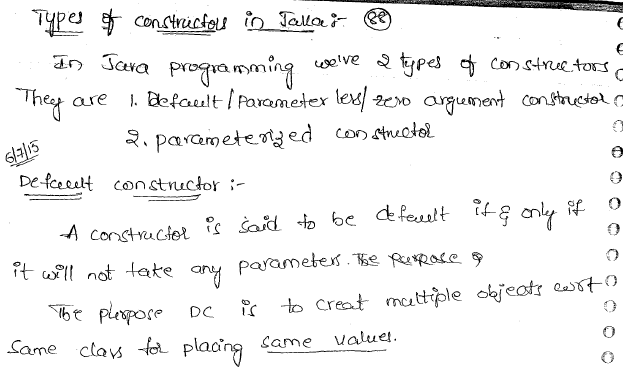 Types of constructors in Java:- 88
In Java programming we've 2 types of constructors
They are 1. Default/Parameter less/zero argument constructor
2. parameterized constructor
6/7/15
Default constructor :-
A constructor is said to be default if & only if
it will not take any parameters. The purpose of
The purpose DC is to creat multiple objects wort
Same class for placing same values.